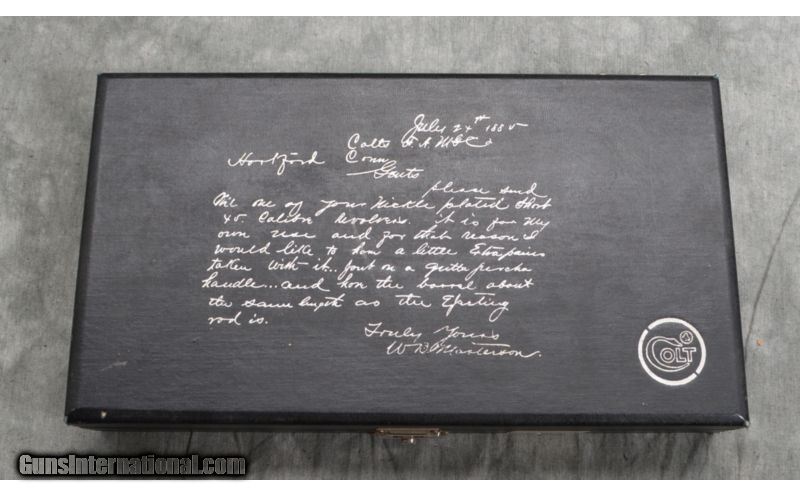 July 24th 1885
Colts F A Mfg Co
Hartford Conn
Gents
please send
Me one of your Nickle plated Short
45. Calibre Revolvers. it is for My
own use and for that reason I
would like to have a little Extra pains
taken with it.. put on a gutta percha
handle...and have the barrel about
the same length as the Ejecting
rod is.
Truly Yours
W B Masterson.
COLT
GunsInternational.com